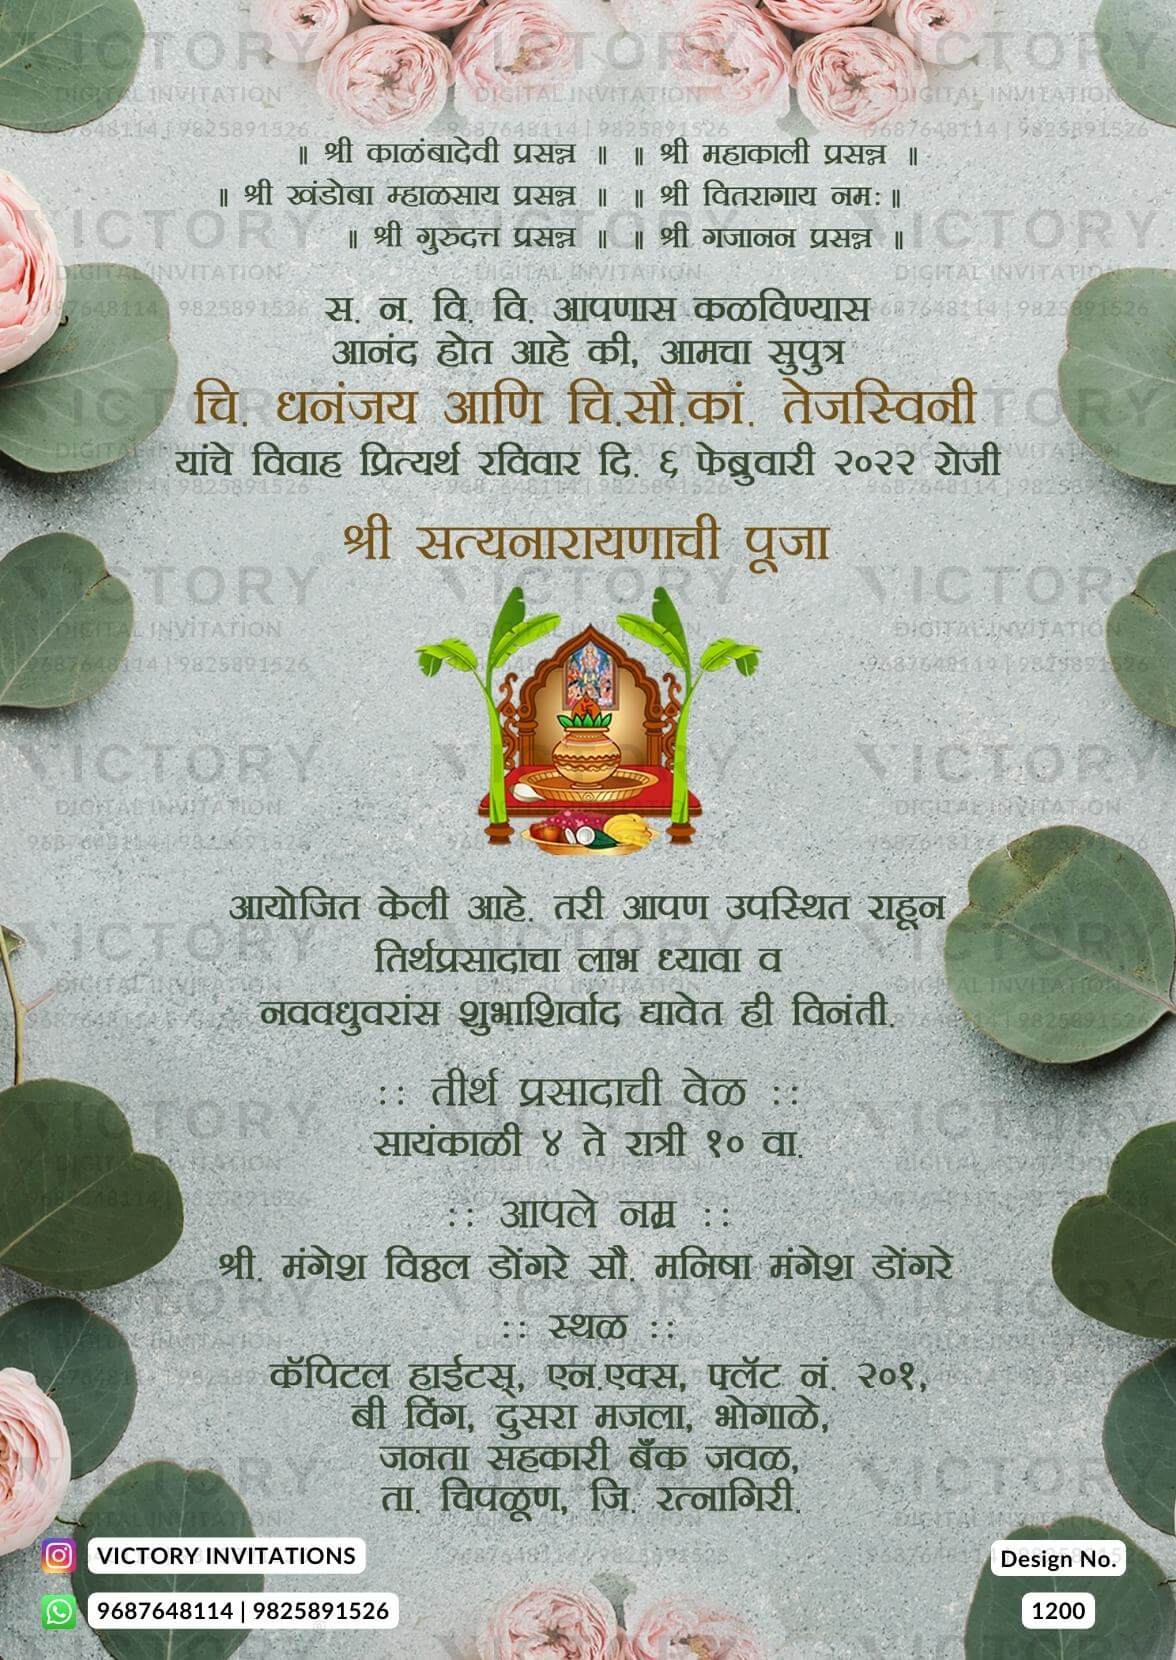 ॥ श्री काळंबादेवी प्रसन्न ॥ ॥ श्री महाकाली प्रसन्न ॥
॥ श्री खंडोबा म्हाळसाय प्रसन्न ॥ ॥ श्री वितरागाय नमः॥
॥ श्री गुरुदत्त प्रसन्न ॥ ॥ श्री गजानन प्रसन्न ॥
स. न. वि. वि. आपणास कळविण्यास
आनंद होत आहे की, आमचा सुपुत्र
चि. धनंजय आणि चि.सौ.कां. तेजस्विनी
यांचे विवाह प्रित्यर्थ रविवार दि. ६ फेब्रुवारी २०२२ रोजी
श्री सत्यनारायणाची पूजा
आयोजित केली आहे. तरी आपण उपस्थित राहून
तिर्थप्रसादाचा लाभ ध्यावा व
नववधुवरांस शुभाशिर्वाद द्यावेत ही विनंती.
:: तीर्थ प्रसादाची वेळ ::
सायंकाळी ४ ते रात्री १० वा.
:: आपले नम्र ::
श्री. मंगेश विठ्ठल डोंगरे सौ. मनिषा मंगेश डोंगरे
:: स्थळ ::
कॅपिटल हाईटस्, एन.एक्स, फ्लॅट नं. २०१,
बी विंग, दुसरा मजला, भोगाळे,
जनता सहकारी बँक जवळ,
ता. चिपळूण, जि. रत्नागिरी.
VICTORY INVITATIONS
9687648114 | 9825891526
Design No.
1200
VICTORY
DIGITAL INVITATION
9687648114 | 9825891526